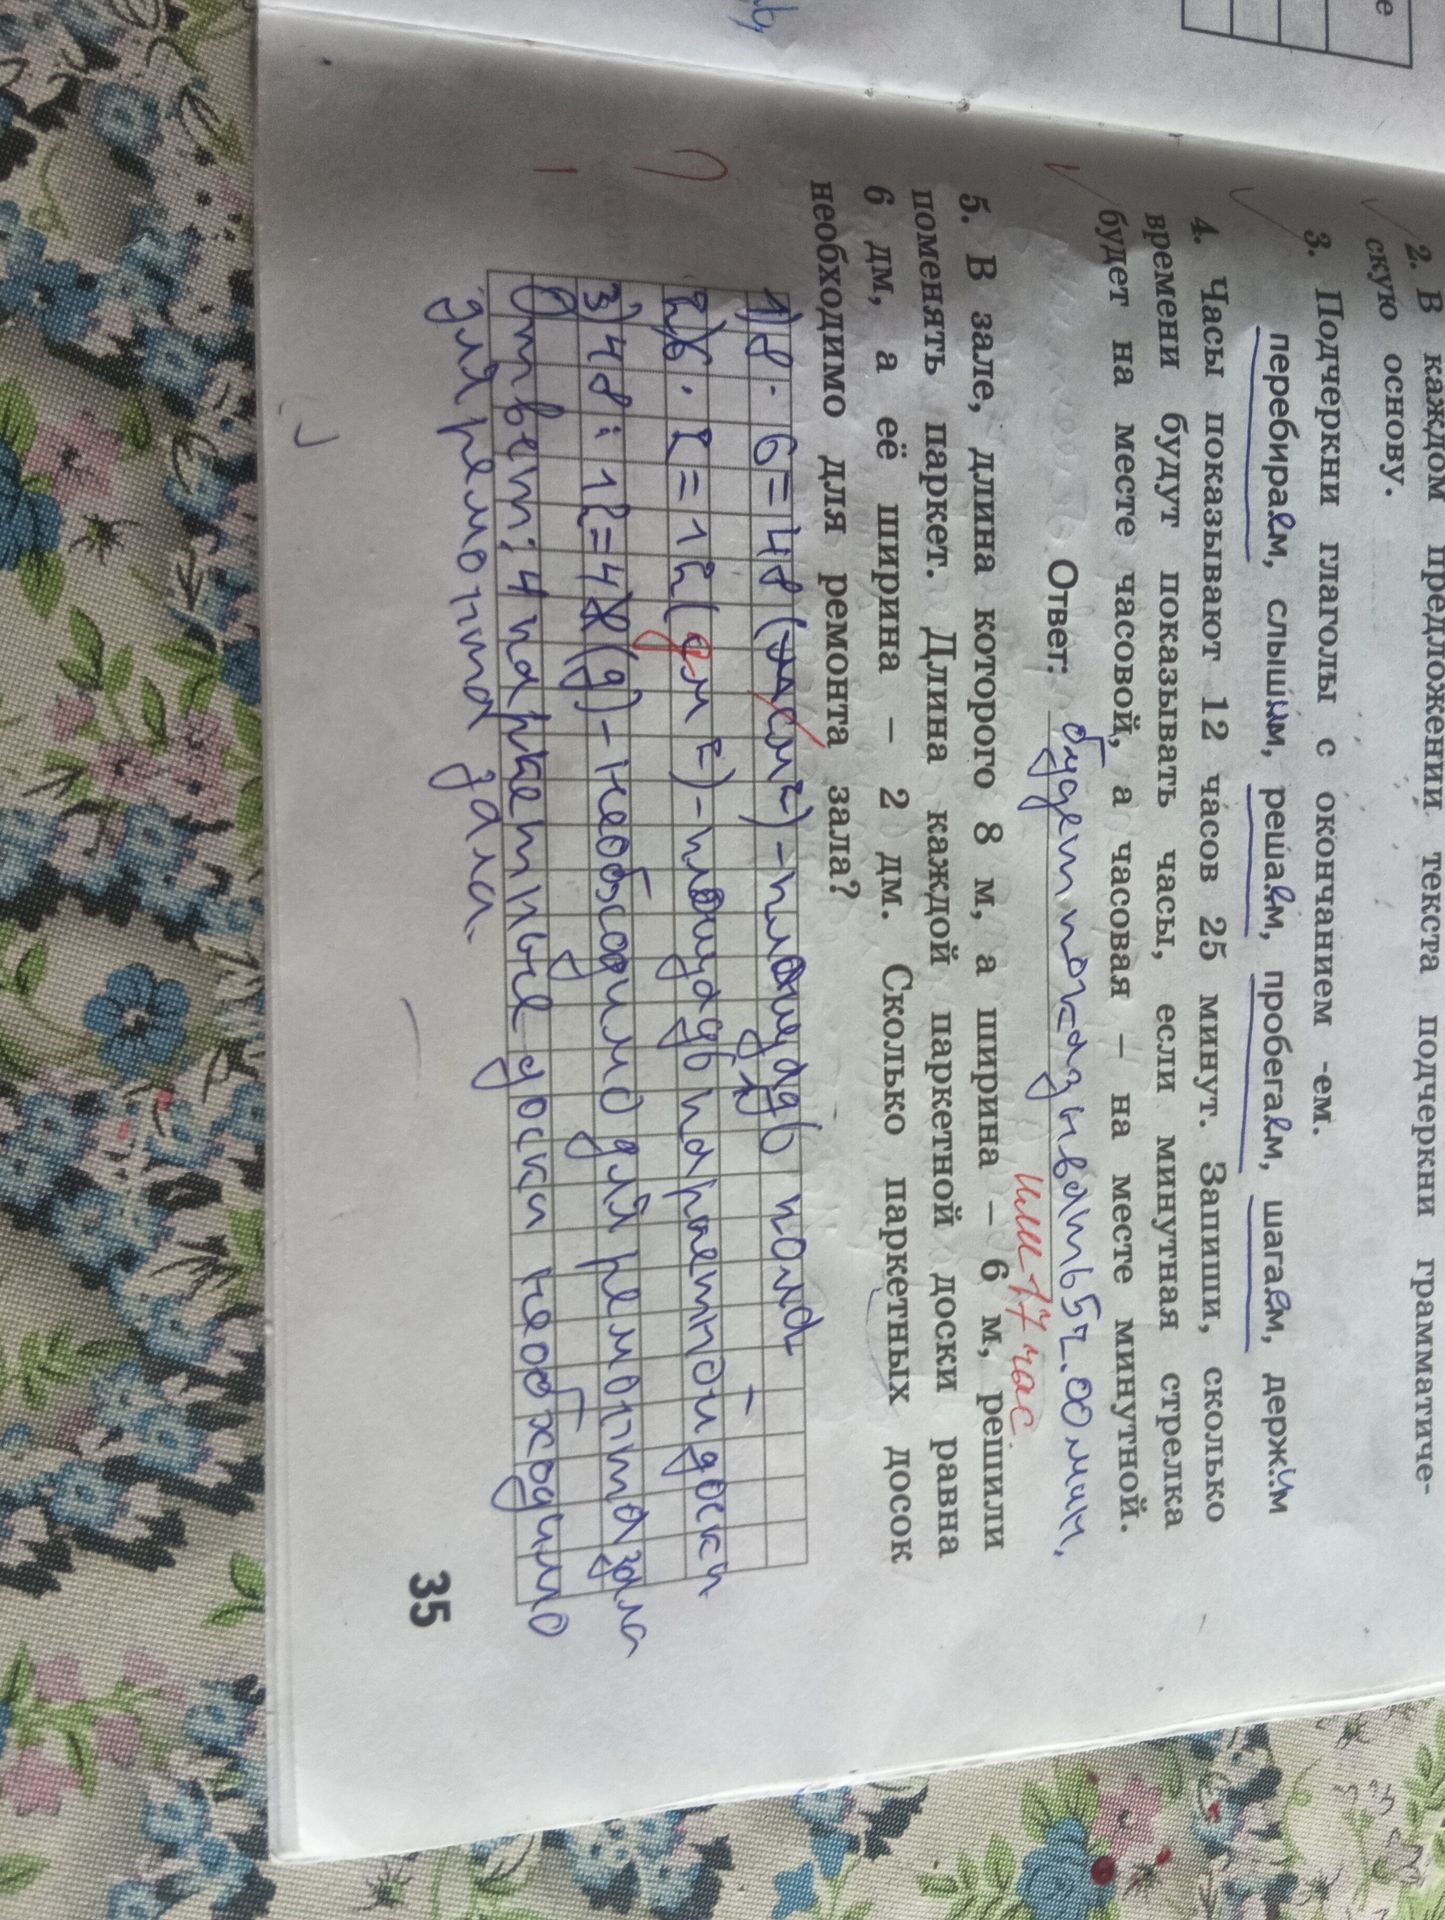 2. В каждом предложении текста подчеркни грамматиче-
скую основу.
3. Подчеркни глаголы с окончанием -ем.
перебираем, слышим, решаем, пробегаем, шагаем, держим
4. Часы показывают 12 часов 25 минут. Запиши, сколько
времени будут показывать часы, если минутная стрелка
будет на месте часовой, а часовая – на месте минутной.
Ответ: будет показывать 5 ч. 00 мин.
или 17 час.
5. В зале, длина которого 8 м, а ширина – 6 м, решили
поменять паркет. Длина каждой паркетной доски равна
6 дм, а её ширина – 2 дм. Сколько паркетных досок
необходимо для ремонта зала?
1) 8 · 6 = 48 (м²) - площадь пола
2) 6 · 2 = 12 (дм²) - площадь паркетной доски
3) 48 : 12 = 4 (д) - необходимо для ремонта зала
Ответ: 4 паркетные доски необходимо
для ремонта зала.
35